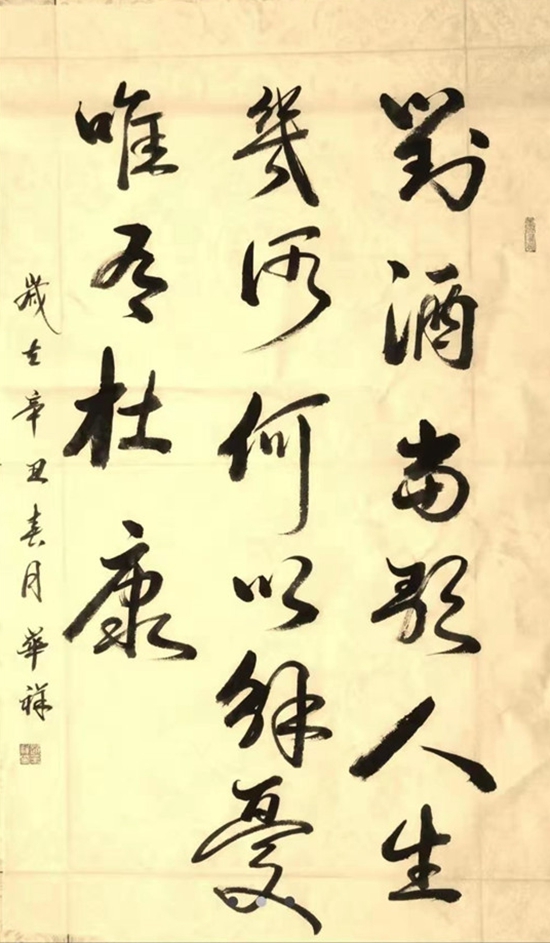 對酒當歌人生
幾何何以解憂
唯有杜康
歲在辛丑春月華祥